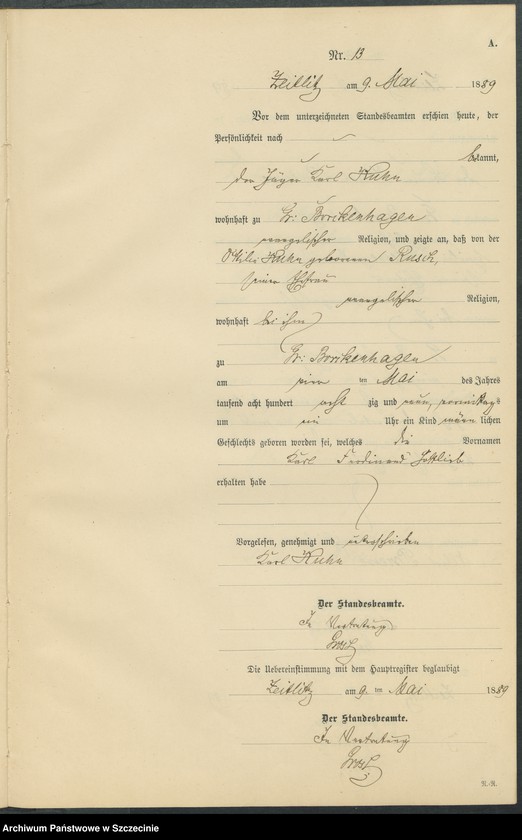 A.
Nr. 13
Zeitlitz am 9. Mai 1889
Vor dem unterzeichneten Standesbeamten erschien heute, der
Persönlichkeit nach
bekannt,
der Jäger Karl Kuhn
wohnhaft zu Gr. Borckenhagen
evangelischer Religion, und zeigte an, daß von der
Ottilie Kuhn geborenen Rusch,
seiner Ehefrau
evangelischer Religion,
wohnhaft bei ihm
zu Gr. Borckenhagen
am im Mai des Jahres
tausend acht hundert acht zig und neun, vormittags
um Uhr ein Kind männlichen
Geschlechts geboren worden sei, welches die Vornamen
Karl Ferdinand Gottlieb
erhalten habe
Vorgelesen, genehmigt und unterschrieben
Karl Kuhn
Der Standesbeamte.
In Vertretung
Die Uebereinstimmung mit dem Hauptregister beglaubigt
Zeitlitz am 9. ten Mai 1889
Der Standesbeamte.
In Vertretung
Archiwum Państwowe w Szczecinie